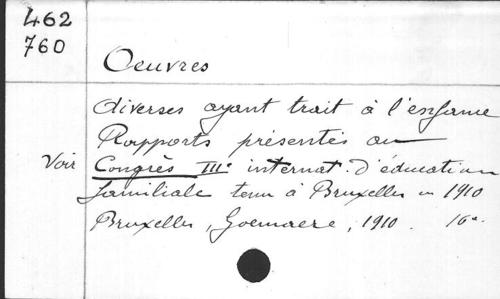 462
760
Oeuvres
diverses ayant trait à l'enfance
Rapports présentés au
Voir Congrès IIIe internat. d'éducation
familiale tenu à Bruxelles en 1910
Bruxelles, Goemaere, 1910. 16°.